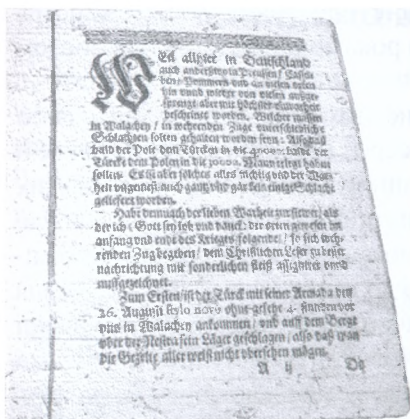 WEil allhier in Deutschland
auch anderßwo in Preussen / Cassu-
ben / Pommern und an vielen orten
hin unnd wieder von vielen außge-
sprengt aber mit höchster unwarheit
bescheinet worden, Welcher massen
in Walachey / in wehrenden Zuge unterschiedliche
Schlachten solten gehalten worden seyn: Also das
bald der Pole den Türcken in die 40000. balde der
Türcke dem Polen in die 30000. Mann erlegt haben
sollen. Es ist aber solches alles nichtig und der War-
heit ungemeß auch gantz und gar kein einige Schlacht
geliefert worden.
Habe demnach der lieben Warheit zur stewer / als
der ich / Gott sey lob und danck: der örter gewesen im
anfang und ende des Krieges folgende / so sich weh-
renden Zug begeben / dem Christlichen Leser zu besser
nachrichtung mit sonderlichen fleiß assigniret unnd
auffgezeichnet.
Zum Ersten ist der Türck mit seiner Armada den
26. Augusti stylo novo ohne gefehr 4. stunden vor
uns in Walachey ankommen / und auff dem Berge
ober der Nestra sein Läger geschlagen / also daß man
die Gezelte aller weiß nicht übersehen mögen.
A ij Da